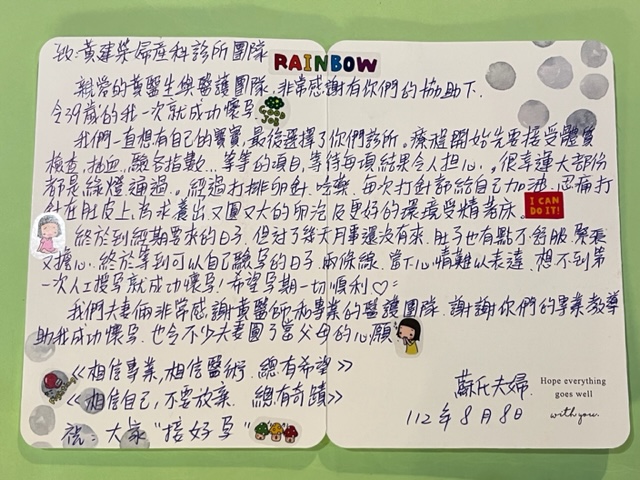 致:黃建榮婦產科診所團隊
RAINBOW
親愛的黃醫生與醫護團隊,非常感謝有你們的協助下.
令39歲的我一次就成功懷孕.
我們一直想有自己的寶寶,最後選擇了你們診所。療程開始先要接受體質
檢查,抽血,驗各指數...等等的項目,等待每項結果令人担心。很幸運大部份
都是綠燈通過。經過打排卵針.吃藥.每次打針都給自己加油,忍痛打
針在肚皮上,為求養出又圓又大的卵泡及更好的環境受精著床。
I CAN DO IT!
終於到經期要來的日子,但过了幾天月事還沒有來.肚子也有點不舒服.緊張
又擔心.終於等到可以自己驗孕的日子.兩條線.當下心情難以表達.想不到第
一次人工授孕就成功懷孕!希望孕期一切順利♡
我們夫妻倆非常感謝黃醫師和專業的醫護團隊.謝謝你們的專業教導
助我成功懷孕.也令不少夫妻圓了當父母的心願
《相信專業,相信醫術.總有希望》
《相信自己,不要放棄.總有奇蹟》
祝:大家"接好孕"
蘇氏夫婦.
112年8月8日
Hope everything
goes well
with you.